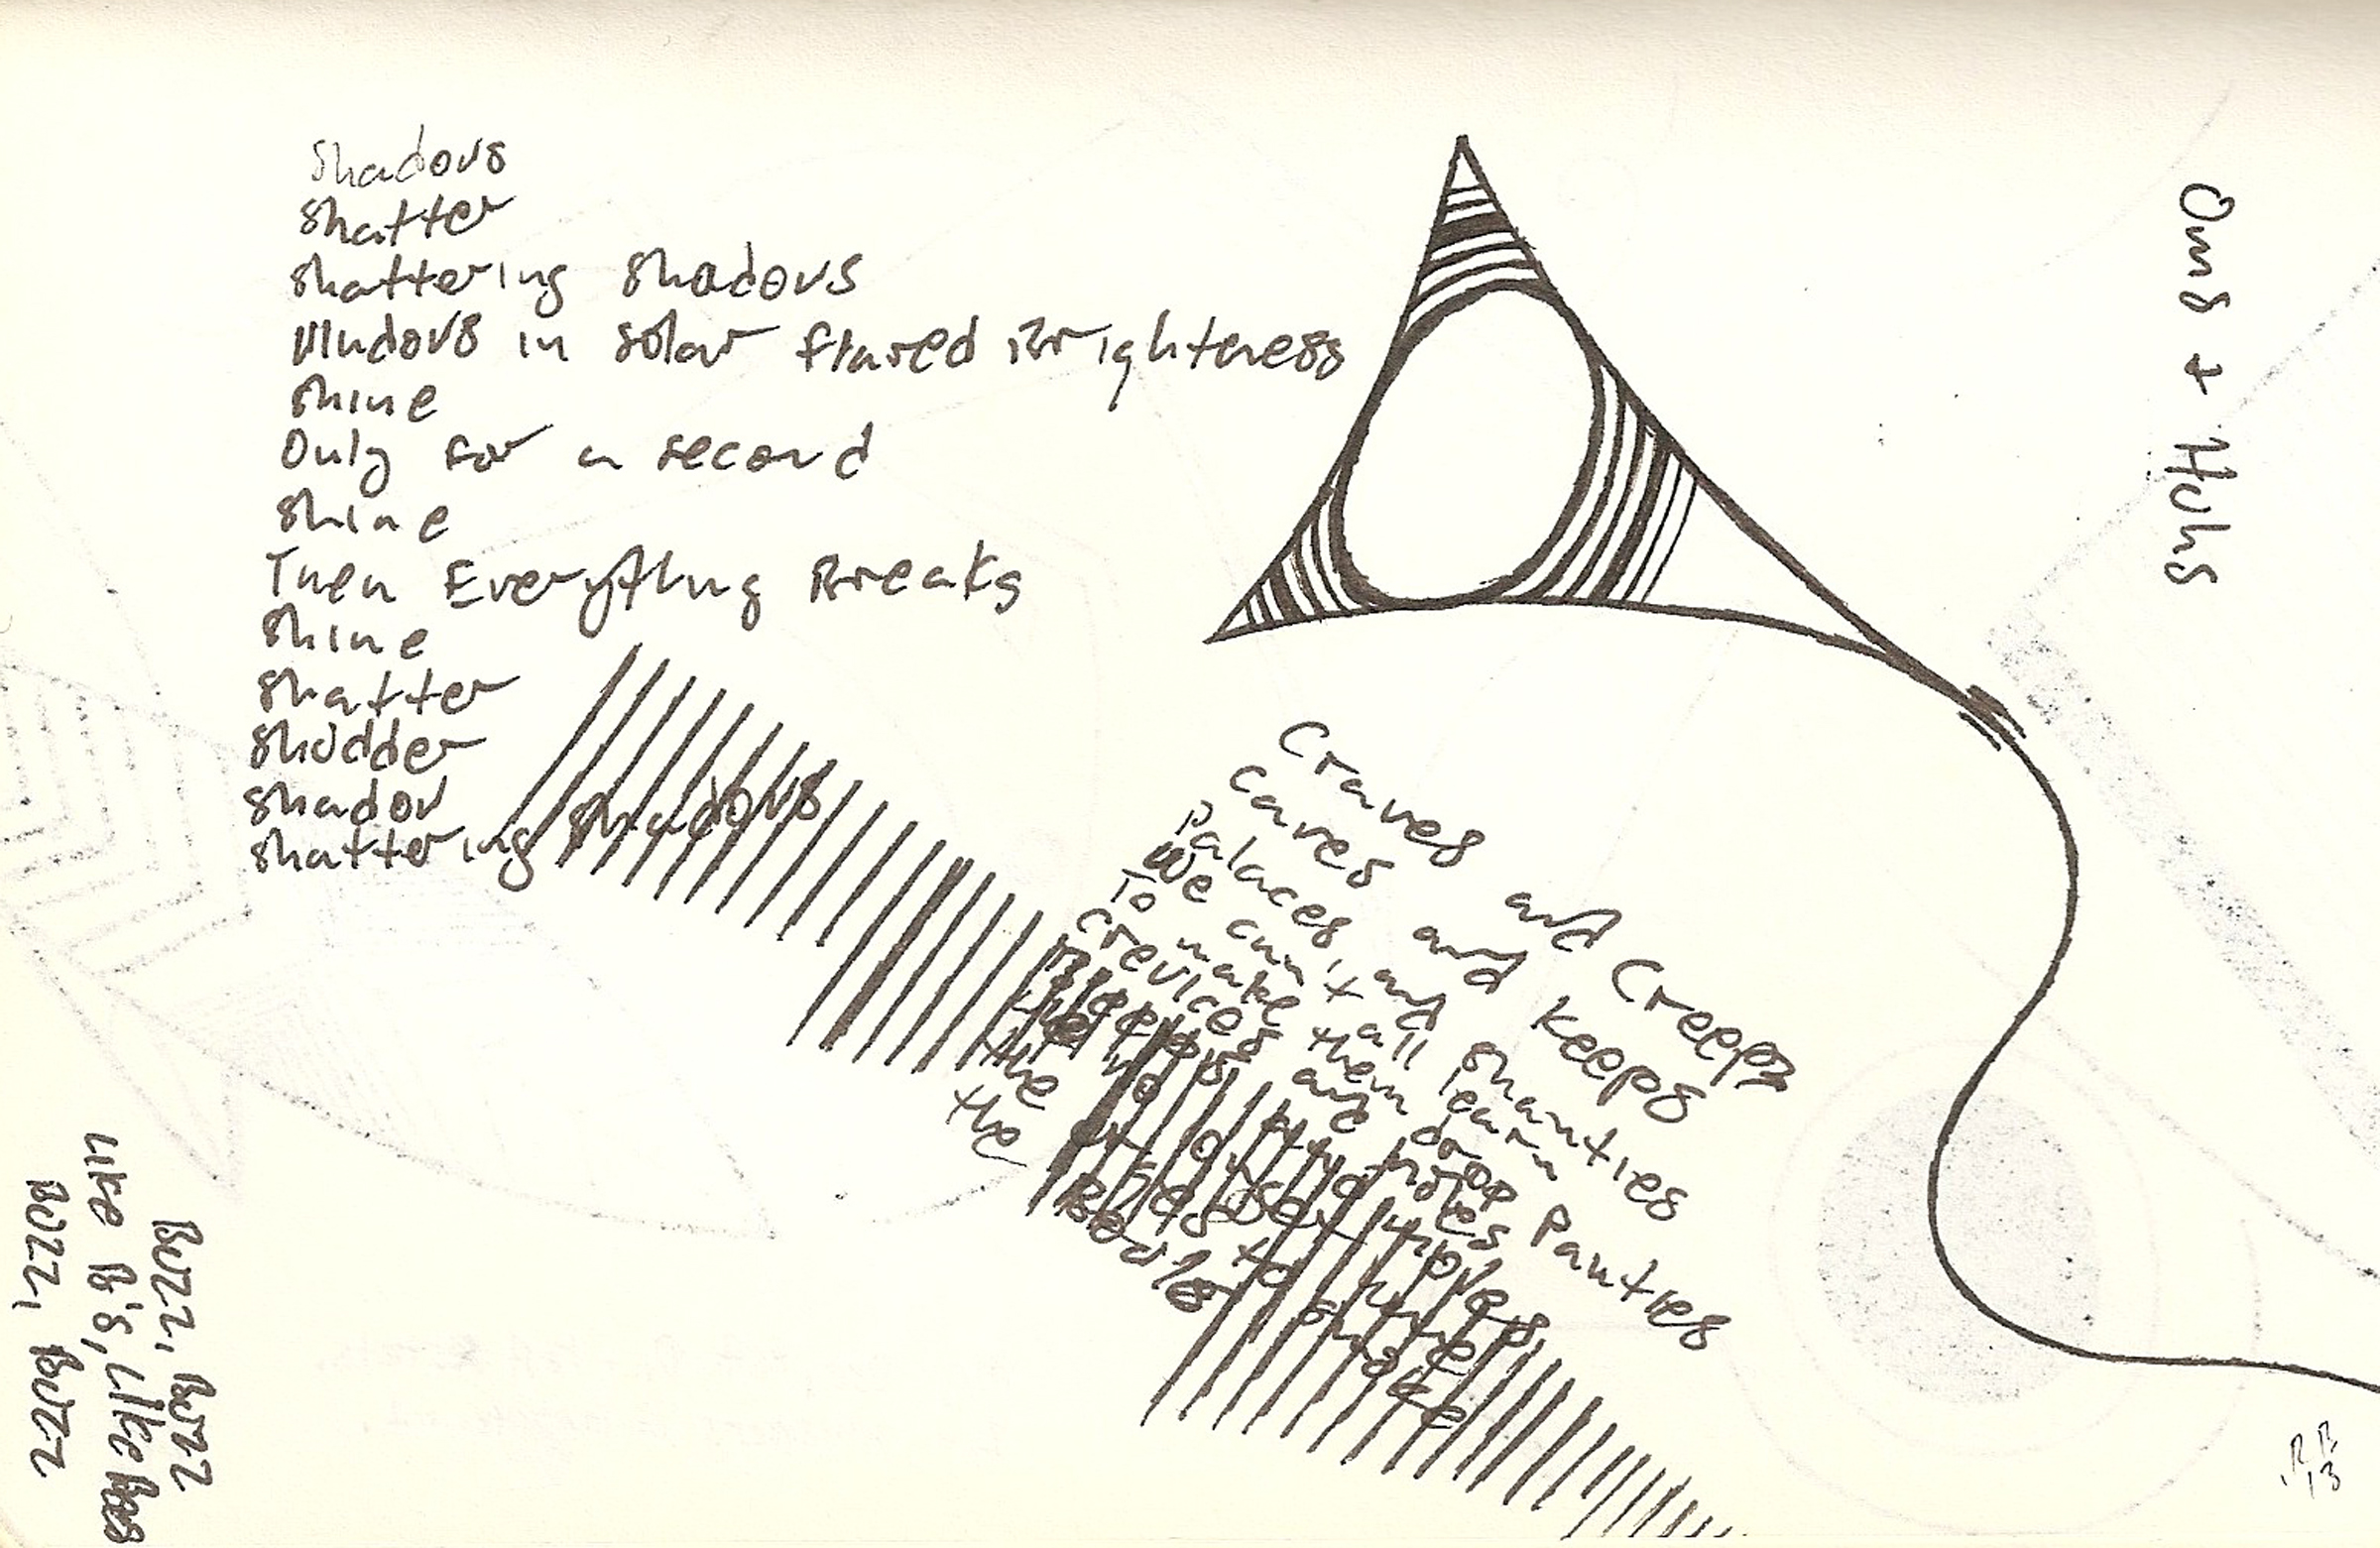 shadows
shatter
shattering shadows
Windows in solar flared Brighteness
shine
Only for a second
shine
Then Everything Breaks
shine
shatter
shudder
shadow
shattering shadows
Oms + Huhs
Craves and Creeps
caves and keeps
Palaces, and shanties
We can't all learn
To make them drop panties
crevices and holes
the
the
Buzz, Buzz
Like B's, Like Bees
Buzz, Buzz
RR
13